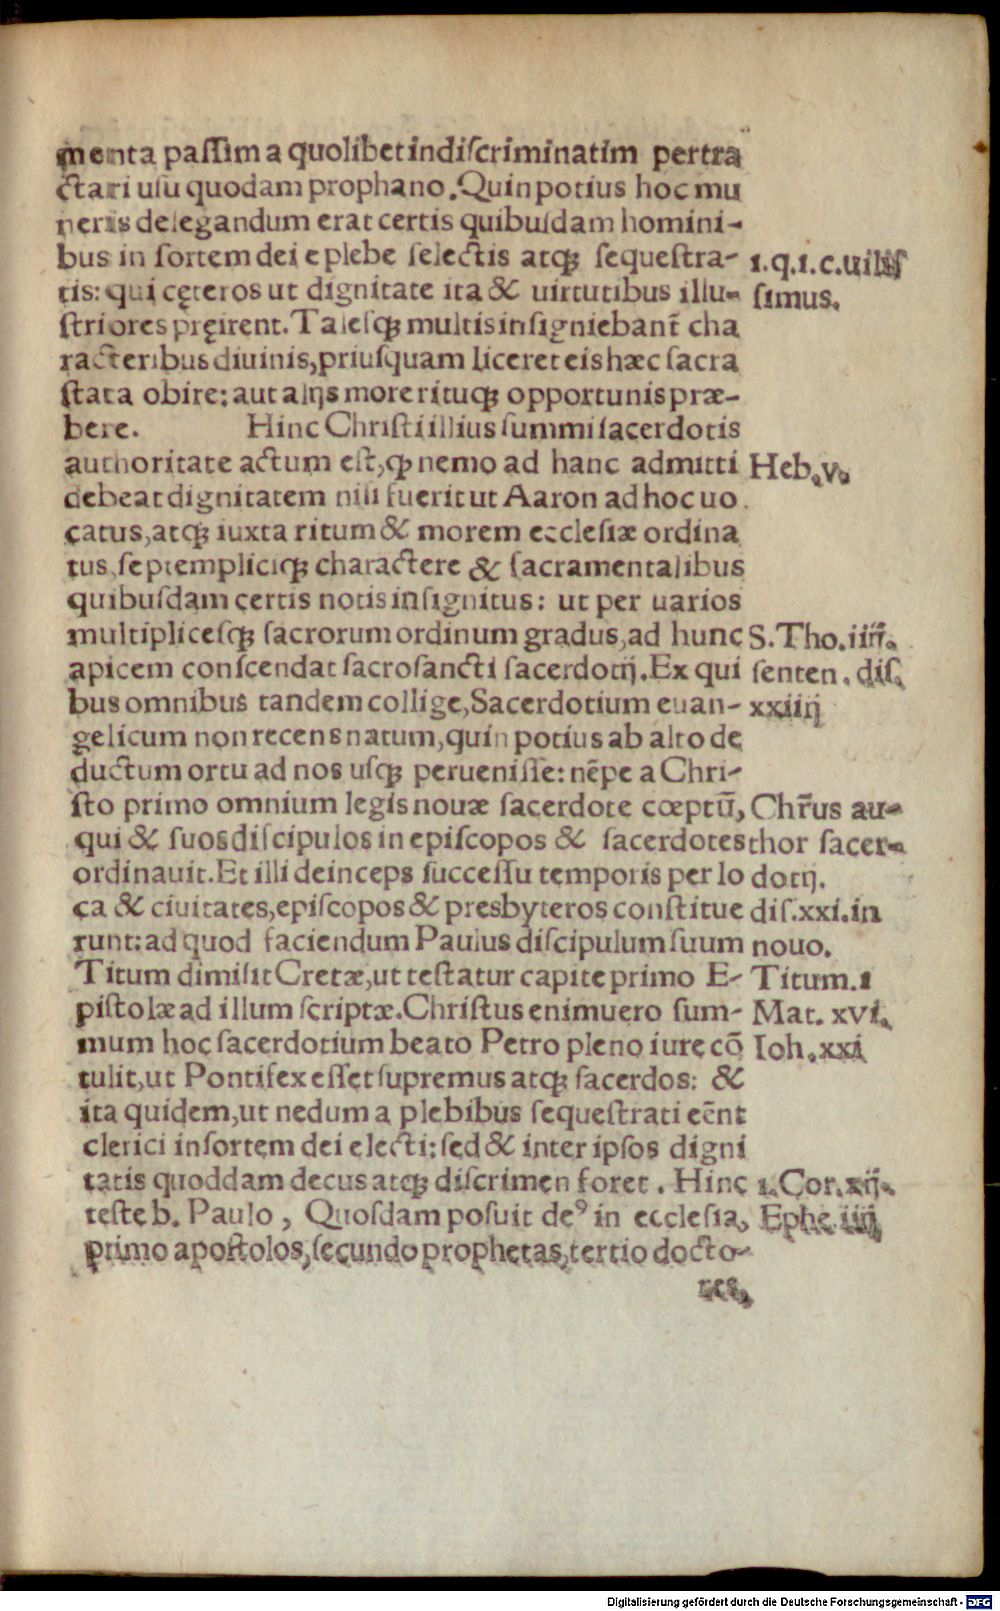 menta passim a quolibet indiscriminatim pertra
ctari usu quodam prophano. Quin potius hoc mu
neris delegandum erat certis quibusdam homini-
bus in sortem dei e plebe selectis atqꝫ sequestra-
tis: qui cęteros ut dignitate ita & uirtutibus illu-
striores pręirent. Talesqꝫ multis insigniebant̃ cha
racteribus diuinis, priusquam liceret eis hæc sacra
stata obire: aut alijs more rituqꝫ opportunis præ-
bere. Hinc Christi illius summi sacerdotis
authoritate actum est, ꝙ nemo ad hanc admitti
debeat dignitatem nisi fuerit ut Aaron ad hoc uo
catus, atqꝫ iuxta ritum & morem ecclesiæ ordina
tus, septempliciqꝫ charactere & sacramentalibus
quibusdam certis notis insignitus: ut per uarios
multiplicesqꝫ sacrorum ordinum gradus, ad hunc
apicem conscendat sacrosancti sacerdotij. Ex qui
bus omnibus tandem collige, Sacerdotium euan-
gelicum non recens natum, quin potius ab alto de
ductum ortu ad nos usqꝫ peruenisse: nẽpe a Chri-
sto primo omnium legis nouæ sacerdote cœptũ,
qui & suos discipulos in episcopos & sacerdotes
ordinauit. Et illi deinceps successu temporis per lo
ca & ciuitates, episcopos & presbyteros constitue
runt: ad quod faciendum Paulus discipulum suum
Titum dimisit Cretæ, ut testatur capite primo E-
pistolæ ad illum scriptæ. Christus enimuero sum-
mum hoc sacerdotium beato Petro pleno iure cõ
tulit, ut Pontifex esset supremus atqꝫ sacerdos: &
ita quidem, ut nedum a plebibus sequestrati eẽnt
clerici in sortem dei electi: sed & inter ipsos digni
tatis quoddam decus atqꝫ discrimen foret. Hinc
teste b. Paulo, Quosdam posuit deꝰ in ecclesia,
primo apostolos, secundo prophetas, tertio docto-
res,
1.q.1.c.uilis
simus.
Heb.v.
S. Tho. iiij.
senten. dis.
xxiiij
Chr̃us au-
thor sacer-
dotij.
dis.xxi.in
nouo.
Titum.1
Mat. xvi.
Ioh.xxi
1.Cor.xij.
Ephe.iiij